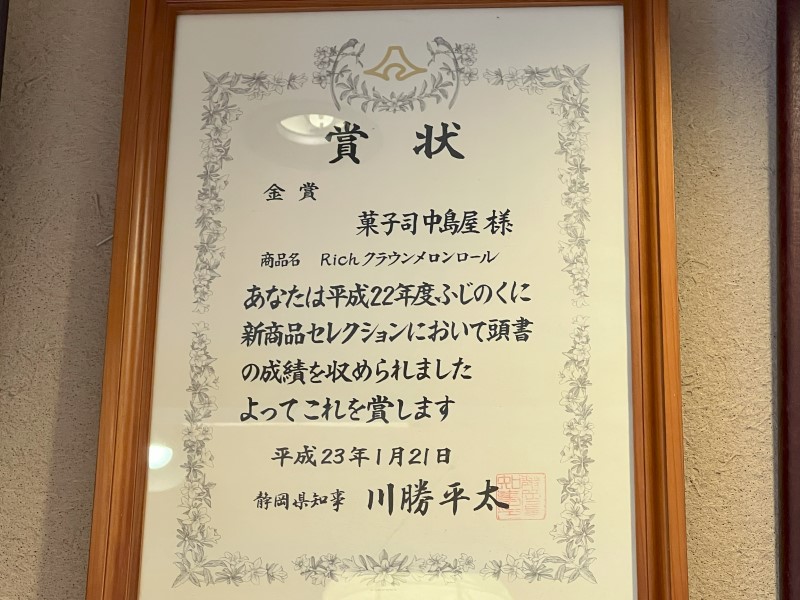 賞状
金賞
菓子司中島屋様
商品名 Richクラウンメロンロール
あなたは平成22年度ふじのくに
新商品セレクションにおいて頭書
の成績を収められました
よってこれを賞します
平成23年1月21日
静岡県知事 川勝平太